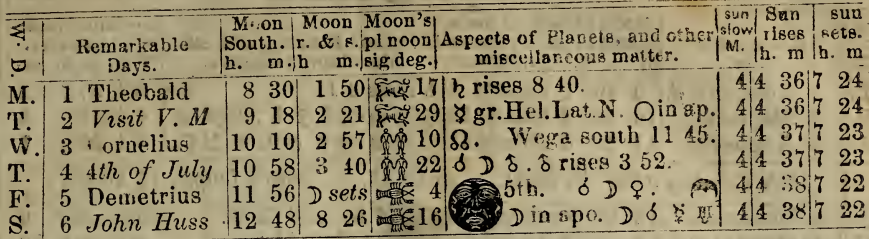 W. D. Remarkable Days. Moon South. h. m. Moon r. & s. h m Moon's pl noon sig deg. Aspects of Planets, and other miscellaneous matter. sun slow M. Sun rises h. m sun sets. h. m
M. 1 Theobald 8 30 1 50 17 ♄ rises 8 40. 4 4 36 7 24
T. 2 Visit V. M 9 18 2 21 29 ☿ gr. Hel. Lat. N. in ap. 4 4 36 7 24
W. 3 ornelius 10 10 2 57 10 ☊. Wega south 11 45. 4 4 37 7 23
T. 4 4th of July 10 58 3 40 22 ☌ ☽ rises 3 52. 4 4 37 7 23
F. 5 Demetrius 11 56 ☽ sets 4 5th. ☌ ☽ ♀. 4 4 38 7 22
S. 6 John Huss 12 48 8 26 16 ☽ in apo. ☽ ☌ ☿ 4 4 38 7 22